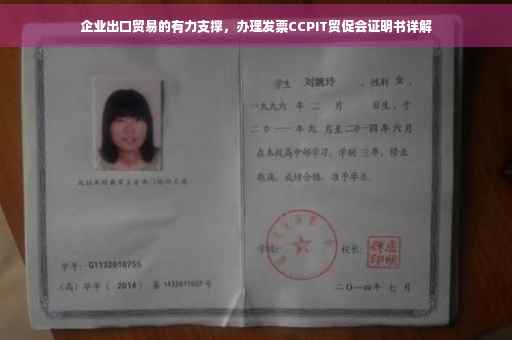 企业出口贸易的有力支撑，办理发票CCPIT贸促会证明书详解
学生 刘婉玲 ，性别 女 ，
一九九六 年 二 月 日生，于
二〇一一 年 九 月至 二〇一四 年 六 月
在本校高中部学习，学制 三 年，修业
期满，成绩合格，准予毕业。
学校： 校长：
学号： G1132010755
（高）毕字（ 2014 ）第 1432011027 号
二〇一四年 七 月